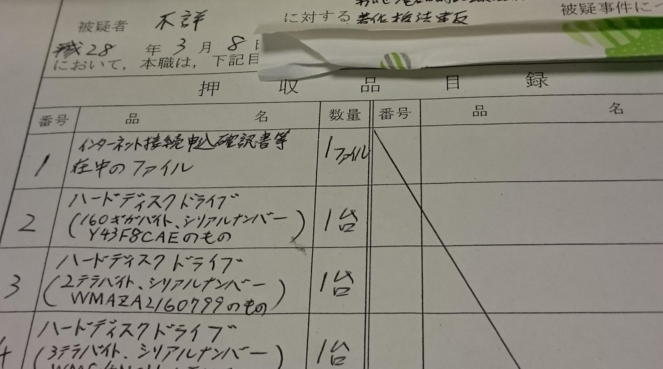 被疑者 不詳 に対する 被疑事件に
28年3月8日
において、本職は、下記目
押収品目録
番号 品名 数量 番号 品名
1 インターネット接続申込確認書等 1ファイル
在中のファイル
2 ハードディスクドライブ 1台
(160ギガバイト、シリアルナンバー
Y43F8CAEのもの)
3 ハードディスクドライブ 1台
(2テラバイト、シリアルナンバー
WMAZA2160799のもの)
4 ハードディスクドライブ 1台
(3テラバイト、シリアルナンバー